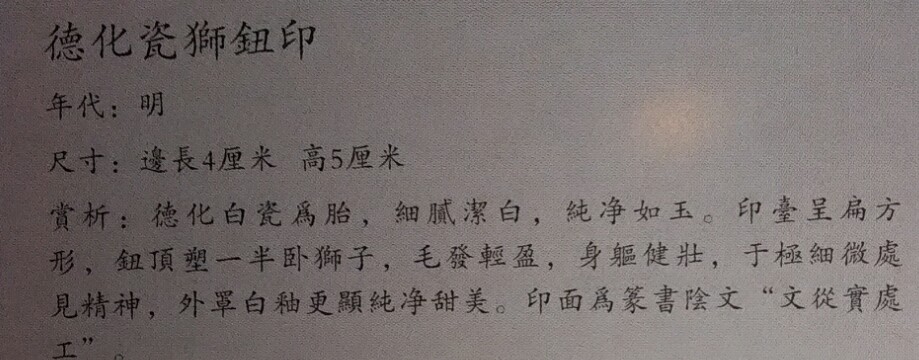 德化瓷獅鈕印
年代：明
尺寸：邊長4厘米 高5厘米
賞析：德化白瓷爲胎，細膩潔白，純净如玉。印臺呈扁方
形，鈕頂塑一半卧獅子，毛發輕盈，身軀健壯，于極細微處
見精神，外罩白釉更顯純净甜美。印面爲篆書陰文“文從實處
工”。